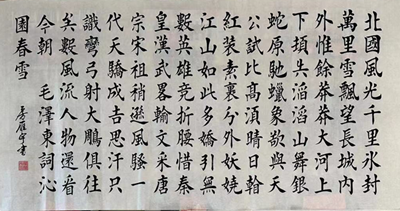 北國風光千里冰封
萬里雪飄望長城内
外惟餘莽莽大河上
下頓失滔滔山舞銀
蛇原馳蠟象欲與天
公試比高須晴日
紅裝素裹分外妖嬈
江山如此多嬌引無
數英雄競折腰惜秦
皇漢武畧輸文采唐
宗宋祖稍遜風騷一
代天驕成吉思汗只
識彎弓射大鵰俱往
矣數風流人物還看
今朝 毛澤東詞沁
園春雪